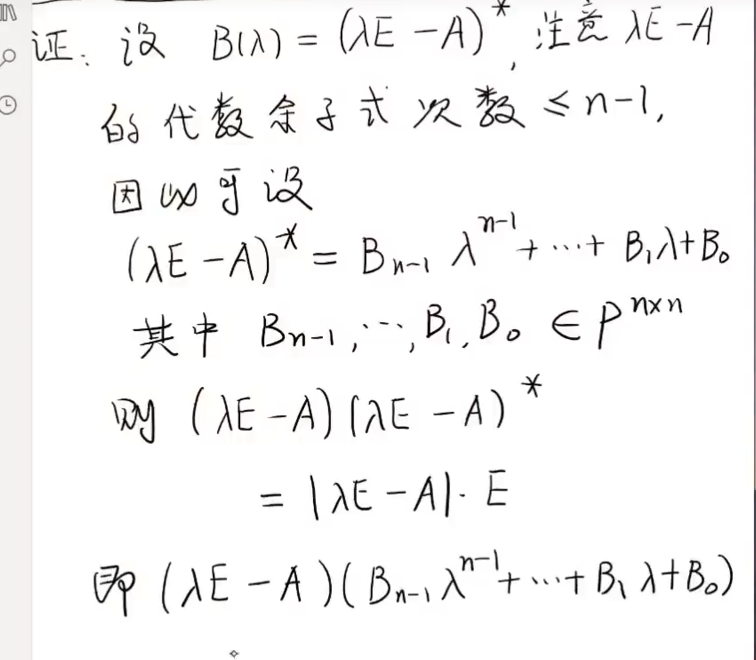 证: 设 B(λ) = (λE - A)*, 注意 λE - A
的代数余子式次数 ≤ n-1,
因此可设
(λE - A)* = Bₙ₋₁ λⁿ⁻¹ + ⋯ + B₁λ + B₀
其中 Bₙ₋₁, ⋯, B₁, B₀ ∈ Pⁿˣⁿ
则 (λE - A)(λE - A)*
= |λE - A| · E
即 (λE - A)(Bₙ₋₁ λⁿ⁻¹ + ⋯ + B₁ λ + B₀)